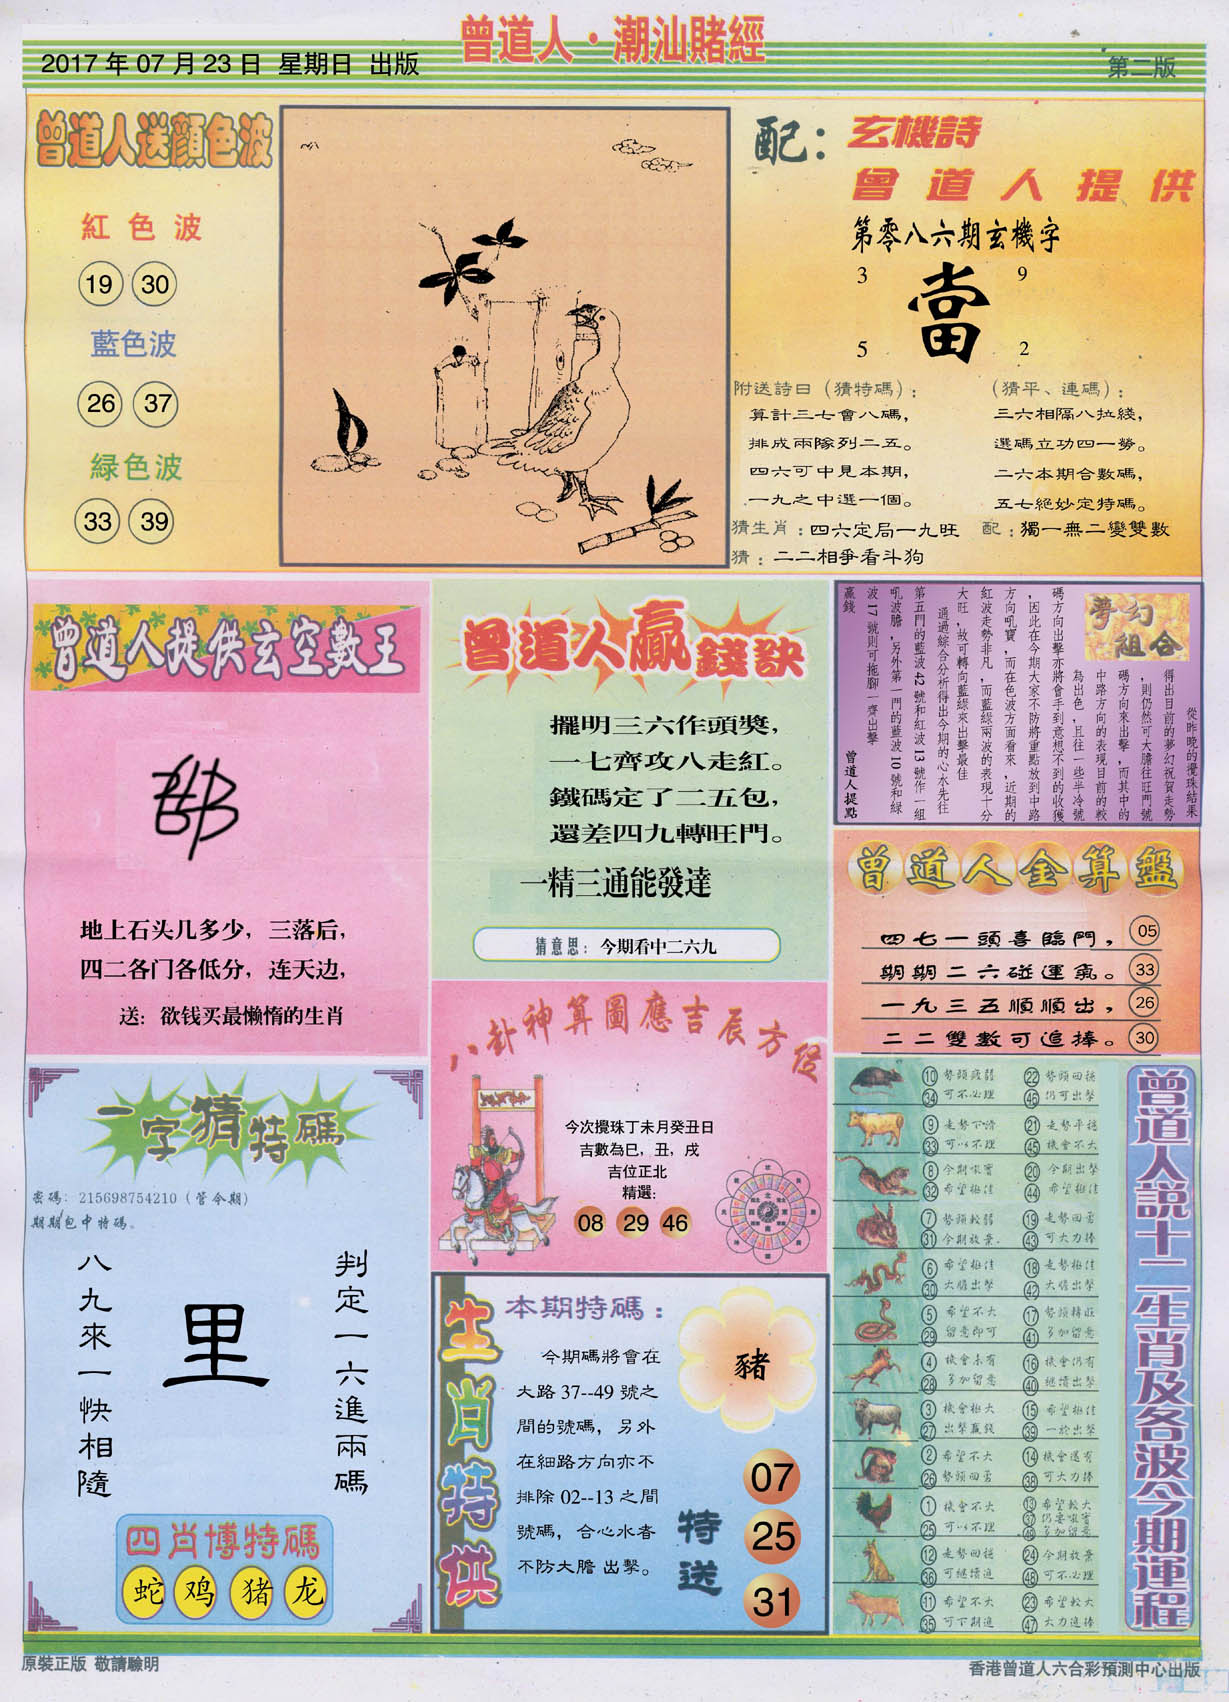 曾道人·潮汕賭經
2017 年 07 月 23 日 星期日 出版
第二版
曾道人送顔色波
紅色波
19 30
藍色波
26 37
緑色波
33 39
配：玄機詩
曾道人提供
第零八六期玄機字
3 9
當
5 2
附送詩曰（猜特碼）：
算計三七會八碼，
排成兩隊列二五。
四六可中見本期，
一九之中選一個。
（猜平、連碼）：
三六相隔八拉綫，
選碼立功四一勞。
二六本期合數碼，
五七絕妙定特碼。
猜生肖：四六定局一九旺
配：獨一無二變雙數
猜：二二相爭看斗狗
曾道人提供玄空數王
地上石头几多少，三落后，
四二各门各低分，连天边，
送：欲钱买最懒惰的生肖
曾道人贏錢訣
擺明三六作頭獎，
一七齊攻八走紅。
鐵碼定了二五包，
還差四九轉旺門。
一精三通能發達
猜意思：今期看中二六九
夢幻
組合
從昨晚的攪珠結果
得出目前的夢幻祝賀走勢
，則仍然可大膽往旺門號
碼方向來出擊，而其中的
中路方向的表現目前的較
為出色，且往一些半冷號
碼方向出擊亦將會手到意想不到的收獲
，因此在今期大家不防將重點放到中路
方向吼寶，而在色波方面看來，近期的
紅波走勢非凡，而藍綠兩波的表現十分
大旺，故可轉向藍綠來出擊最佳
通過綜合分析得出今期的心水先往
第五門的藍波 42 號和紅波 13 號作一組
吼波膽，另外第一門的藍波 10 號和綠
波 17 號則可拖腳一齊出擊
贏錢
曾道人提點
曾道人金算盤
四七一頭喜臨門， 05
期期二六碰運氣。 33
一九三五順順出， 26
二二雙數可追捧。 30
一字猜特碼
密碼：215698754210（管令期）
期期包中特碼。
判定一六進兩碼
里
八九來一快相隨
四肖博特碼
蛇 鸡 猪 龙
八卦神算圖應吉辰方位
今次攪珠丁未月癸丑日
吉數為巳，丑，戌
吉位正北
精選：
08 29 46
生肖特供
本期特碼：
今期碼將會在
大路 37--49 號之
間的號碼，另外
在細路方向亦不
排除 02--13 之間
號碼，合心水者
不防大膽 出擊。
豬
特送
07
25
31
曾道人説十二生肖及各波今期運程
10 勢頭疲弱 22 勢頭回穩
34 可不必理 46 仍可出擊
9 走勢下滑 21 走勢平穩
33 可以不理 45 機會不大
8 今期吸寶 20 今期出擊
32 希望極佳 44 希望極佳
7 勢頭較弱 19 走勢回勇
31 今期放棄 43 可大力捧
6 希望極佳 18 走勢極佳
30 大膽出擊 42 大膽出擊
5 希望不大 17 勢頭轉旺
29 留意即可 41 多加留意
4 機會未有 16 機會仍有
28 多加留意 40 繼續出擊
3 機會極大 15 希望極佳
27 出擊贏錢 39 一於出擊
2 希望不大 14 機會還有
26 勢頭回勇 38 可大力捧
1 機會不大 13 希望較大
25 可以不理 37 仍要吸寶
49 多加留意
12 走勢回穩 24 今期放棄
36 可繼續追 48 可不必理
11 希望不大 23 希望較大
35 可下期追 47 大力追捧
原裝正版 敬請驗明
香港曾道人六合彩預測中心出版